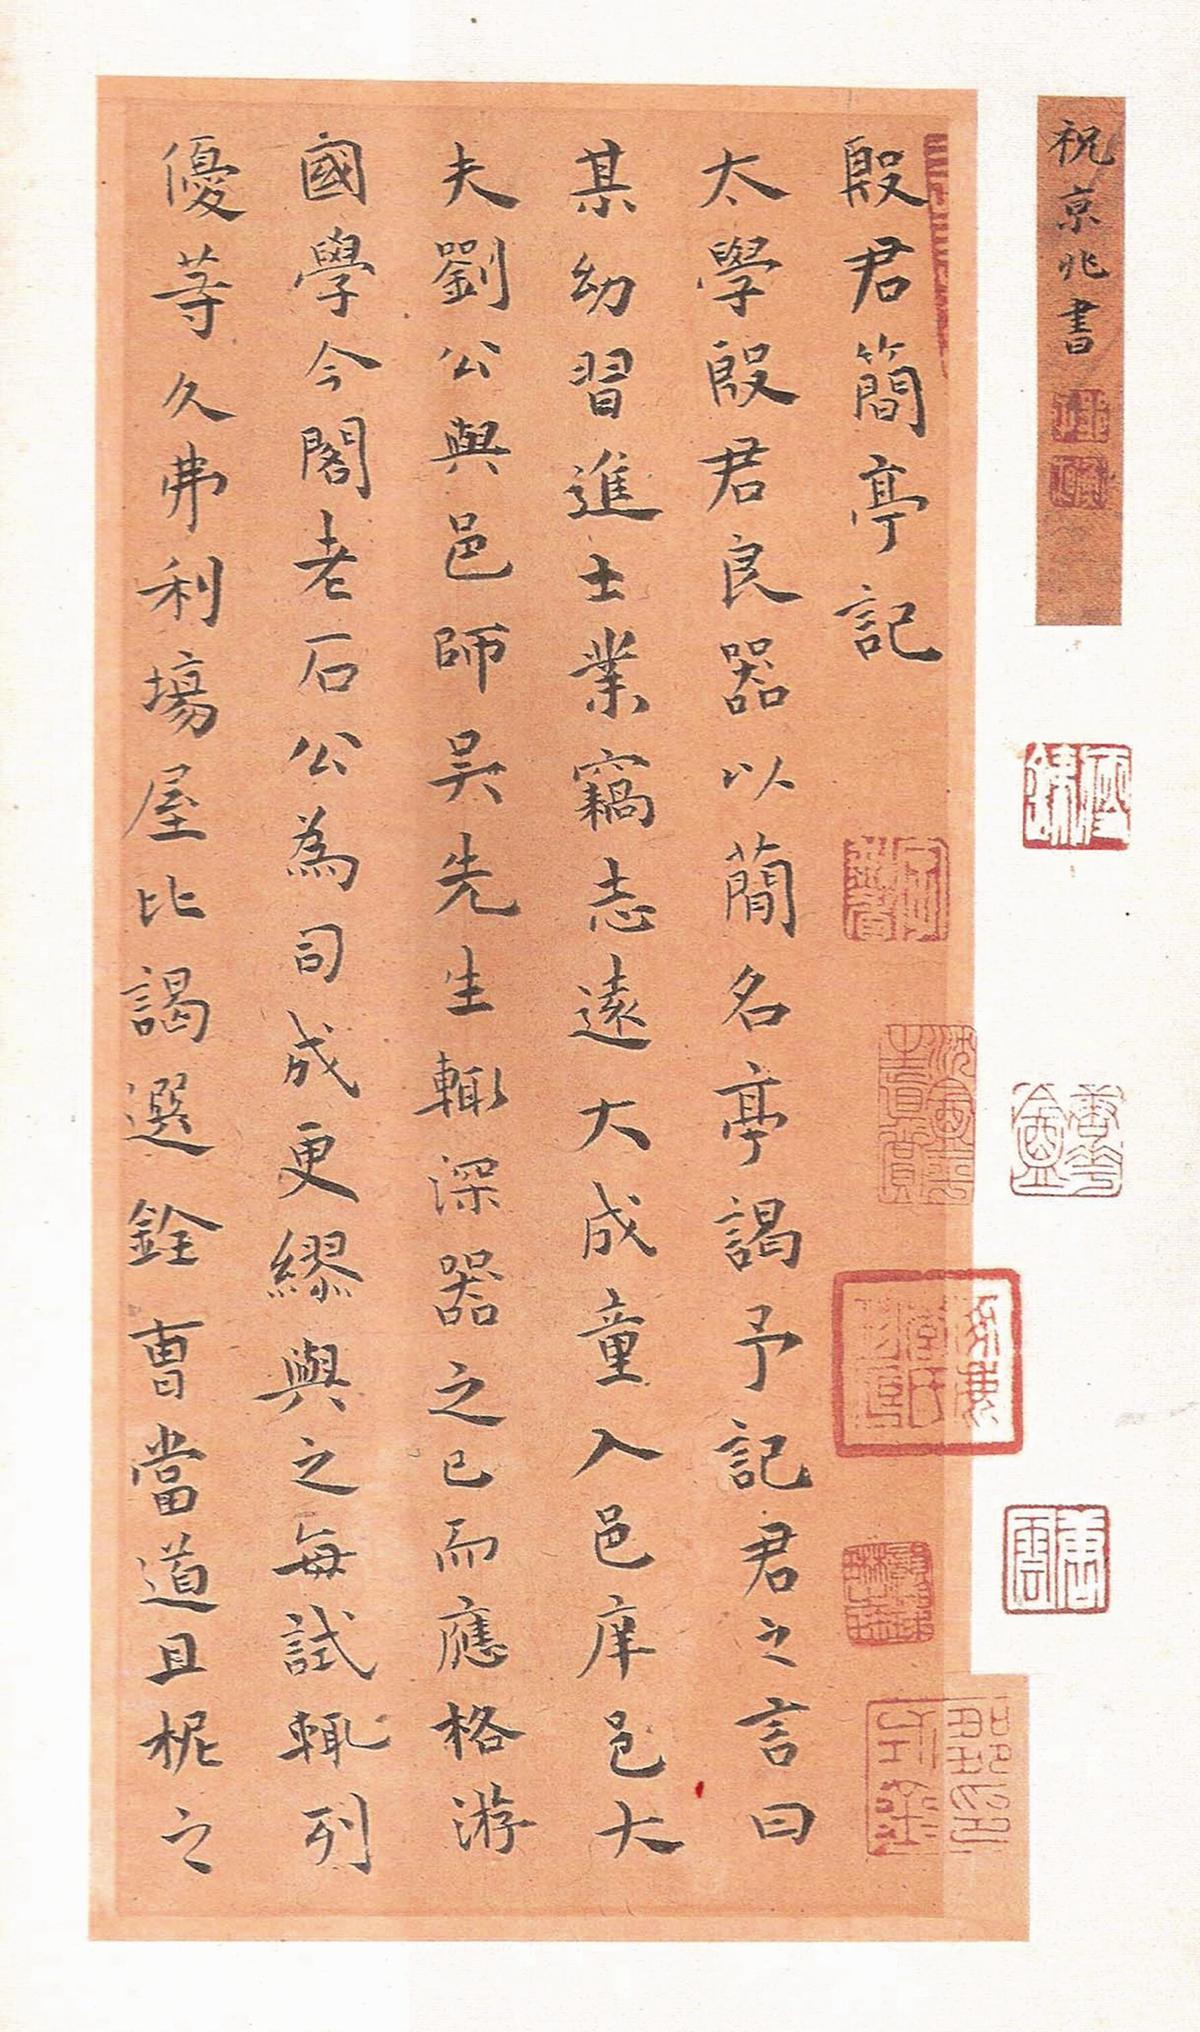 祝京兆書
殷君簡亭記
太學殷君良器以蕳名亭謁予記君之言曰
某幼習進士業竊志遠大成童入邑庠邑大
夫劉公與邑師吴先生輙深器之已而應格游
國學今閣老石公為司成更繆與之每試輙列
優等久弗利塲屋比謁選銓曹當道且柅之